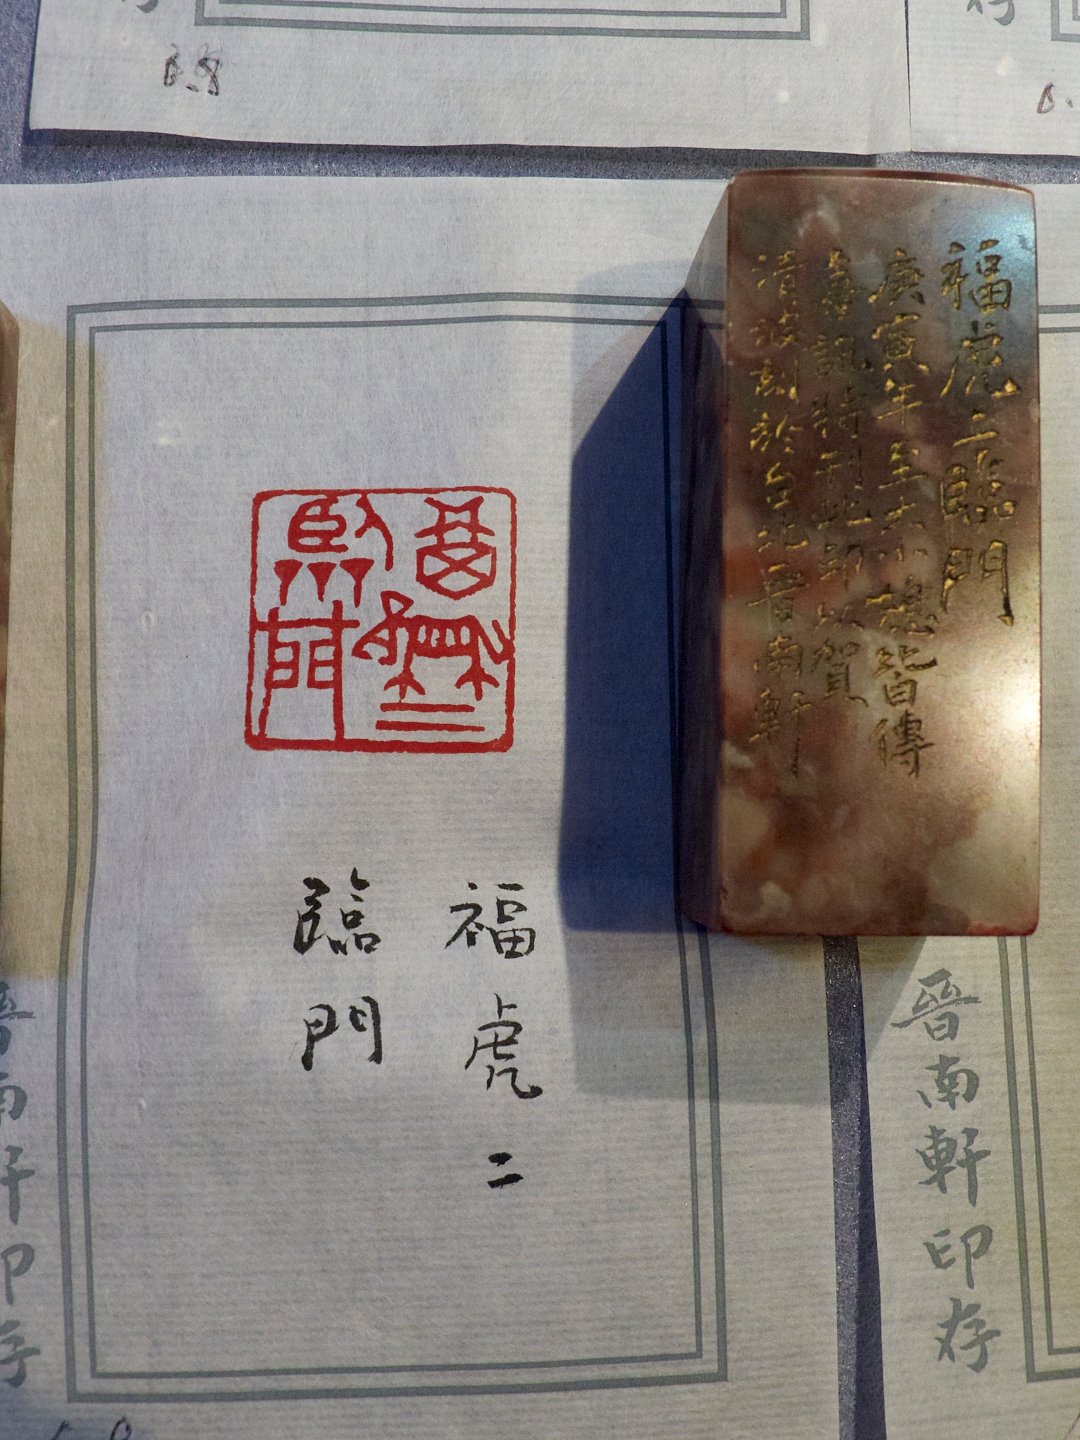 福虎二臨門
庚寅年至大小媳皆傳
喜訊特刊此印以賀
清波刻於台北晉南軒
福虎二
臨門
福虎二
臨門
晉南軒印存
晉南軒印存